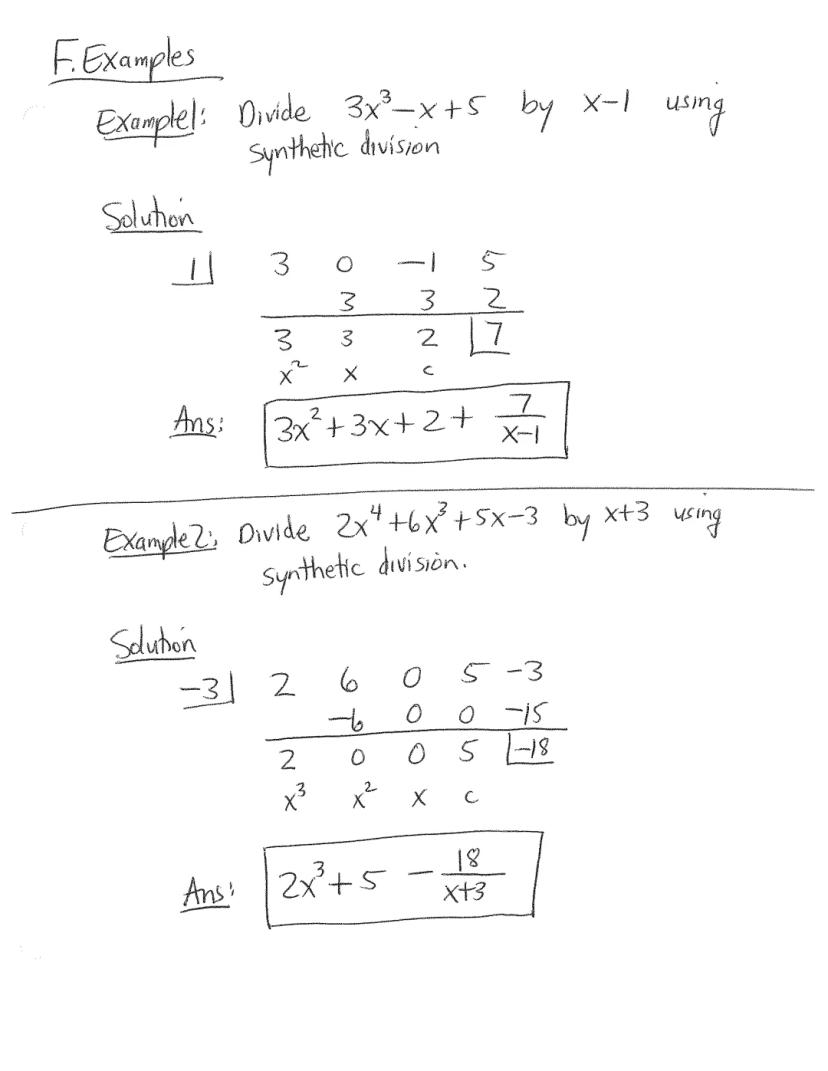 F. Examples
Example1: Divide 3x³-x+5 by x-1 using
synthetic division
Solution
1 3 0 -1 5
3 3 2
3 3 2 7
x² x c
Ans: 3x²+3x+2+ 7/(x-1)
Example2: Divide 2x⁴+6x³+5x-3 by x+3 using
synthetic division.
Solution
-3 2 6 0 5 -3
-6 0 0 -15
2 0 0 5 -18
x³ x² x c
Ans: 2x³+5 - 18/(x+3)